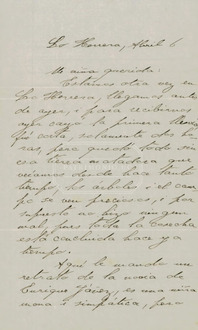 Los Herrera, Abril 6
Mi niña querida:
Estamos otra vez en
Los Herrera, llegamos ante
de ayer, i para recibirnos
ayer cayó la primera lluvia
cita, solamente dos ho
ras, pero quedó todo sin
esa tierra matadora que
veíamos desde hace tanto
tiempo, los árboles i el cam
po se ven preciosos, i por
supuesto no hizo ningun
mal, pues toda la cosecha
está concluida hace ya
tiempo.
Aquí te mando un
retrato de la novia de
Enrique es una niña
mona i simpática, pero